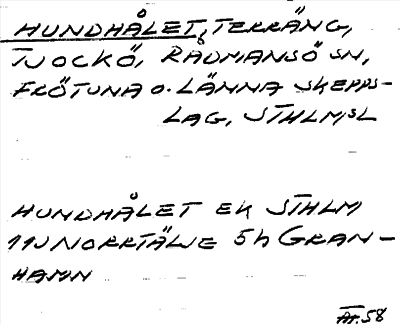 HUNDHÅLET, TERRÄNG,
TJOCKÖ, RÅDMANSÖ SN,
FRÖTUNA O. LÄNNA SKEPPS-
LAG, STHLMSL
HUNDHÅLET EK STHLM
11J NORRTÄLJE 5h GRAN-
HAMN
58